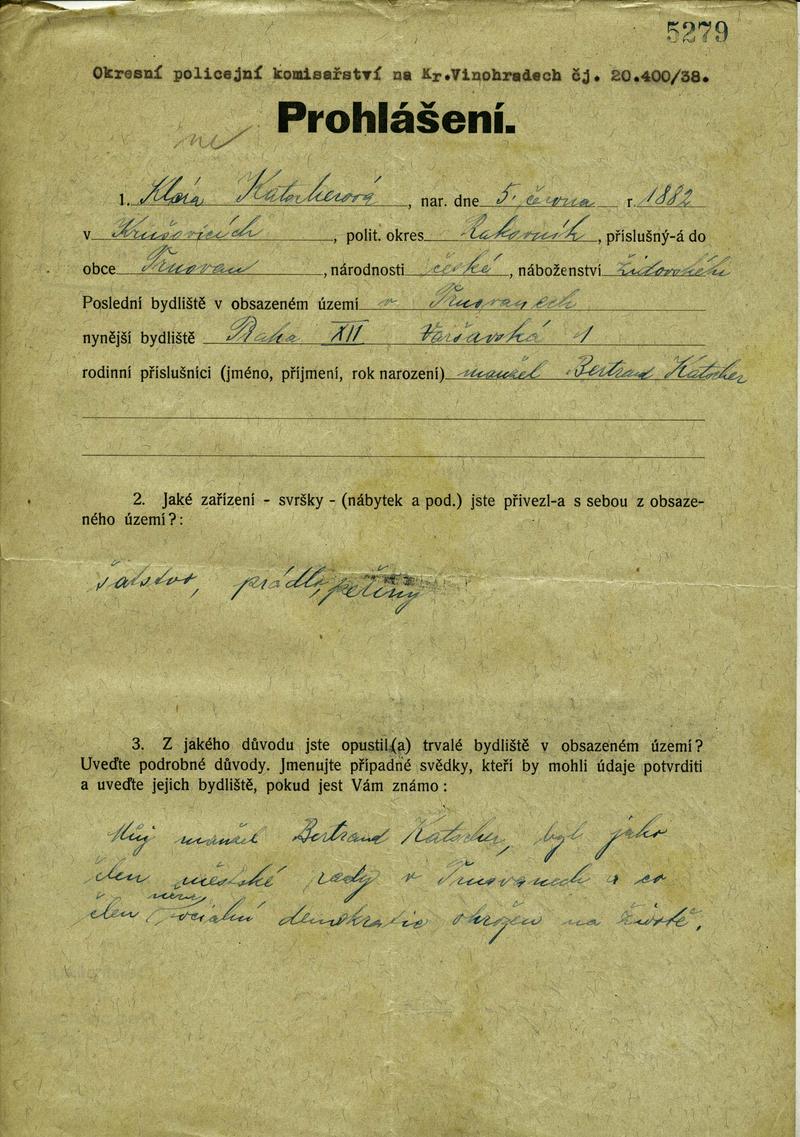 5279
Okresní policejní komisařství na Kr.Vinohradech čj. 20.400/38.
Prohlášení.
ne
1. Klára Katscherová, nar. dne 5. června r. 1882
v Krušovicích, polit. okres Rakovník, příslušný-á do
obce Trnovan, národnosti české, náboženství židovského
Poslední bydliště v obsazeném území v Trnovanech
nynější bydliště Praha XII Varšavská 1
rodinní příslušníci (jméno, příjmení, rok narození) manžel Bertrand Katscher
2. Jaké zařízení - svršky - (nábytek a pod.) jste přivezl-a s sebou z obsaze-
ného území?:
šatstvo, prádlo, peřiny
3. Z jakého důvodu jste opustil(a) trvalé bydliště v obsazeném území?
Uveďte podrobné důvody. Jmenujte případné svědky, kteří by mohli údaje potvrditi
a uveďte jejich bydliště, pokud jest Vám známo:
Můj manžel Bertrand Katscher, byl jako
člen městské rady v Trnovanech a co
něm.
člen sociální demokratie ohrožen na životě.